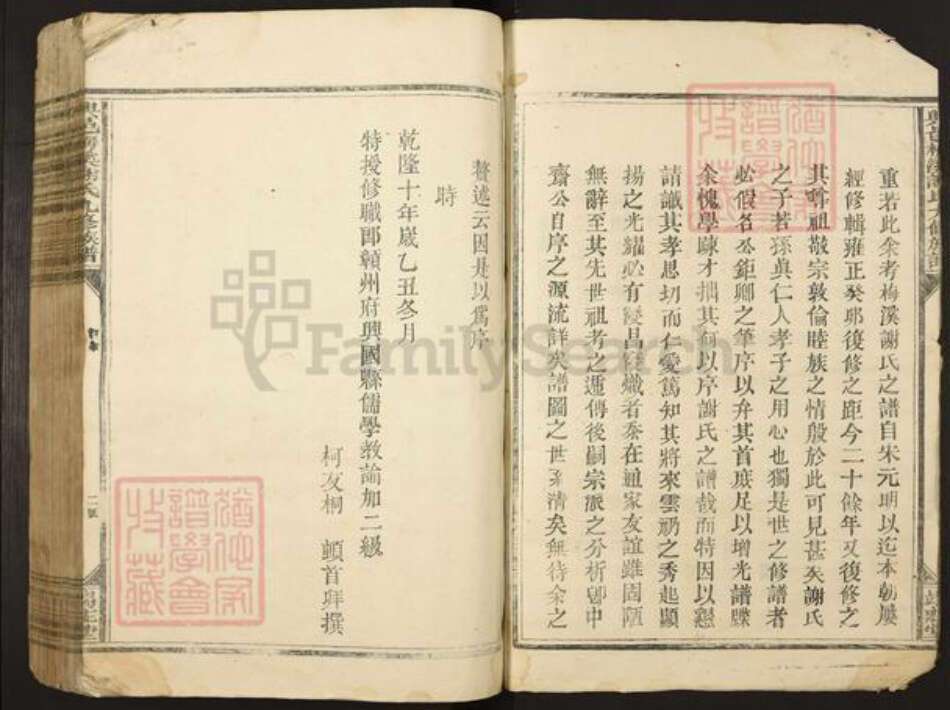 重若此余考梅溪謝氏之譜自宋元明以迄本朝屢
經修輯雍正癸卯復修之距今二十餘年又復修之
其尊祖敬宗敦倫睦族之情殷於此可見甚矣謝氏
之子若孫眞仁人孝子之用心也獨是世之修譜者
必假名公鉅卿之筆序以弁其首底足以增光譜牒
余愧學疎才拙其何以序謝氏之譜哉而特因以懇
請議其孝思切而仁愛篤知其將來雲礽之秀起顯
揚之光耀必有淩昌熾者忝在通家友誼雖固陋
無辭至其先世祖考之遞傳後嗣宗派之分析卽中
齋公自序之源流詳矣譜圖之世系清矣無待余之
贅述云因是以爲序
時
乾隆十年歲乙丑冬月
特授修職郎贛州府興國縣儒學教諭加二級
柯友桐 頓首拜撰
二號
FamilySearch